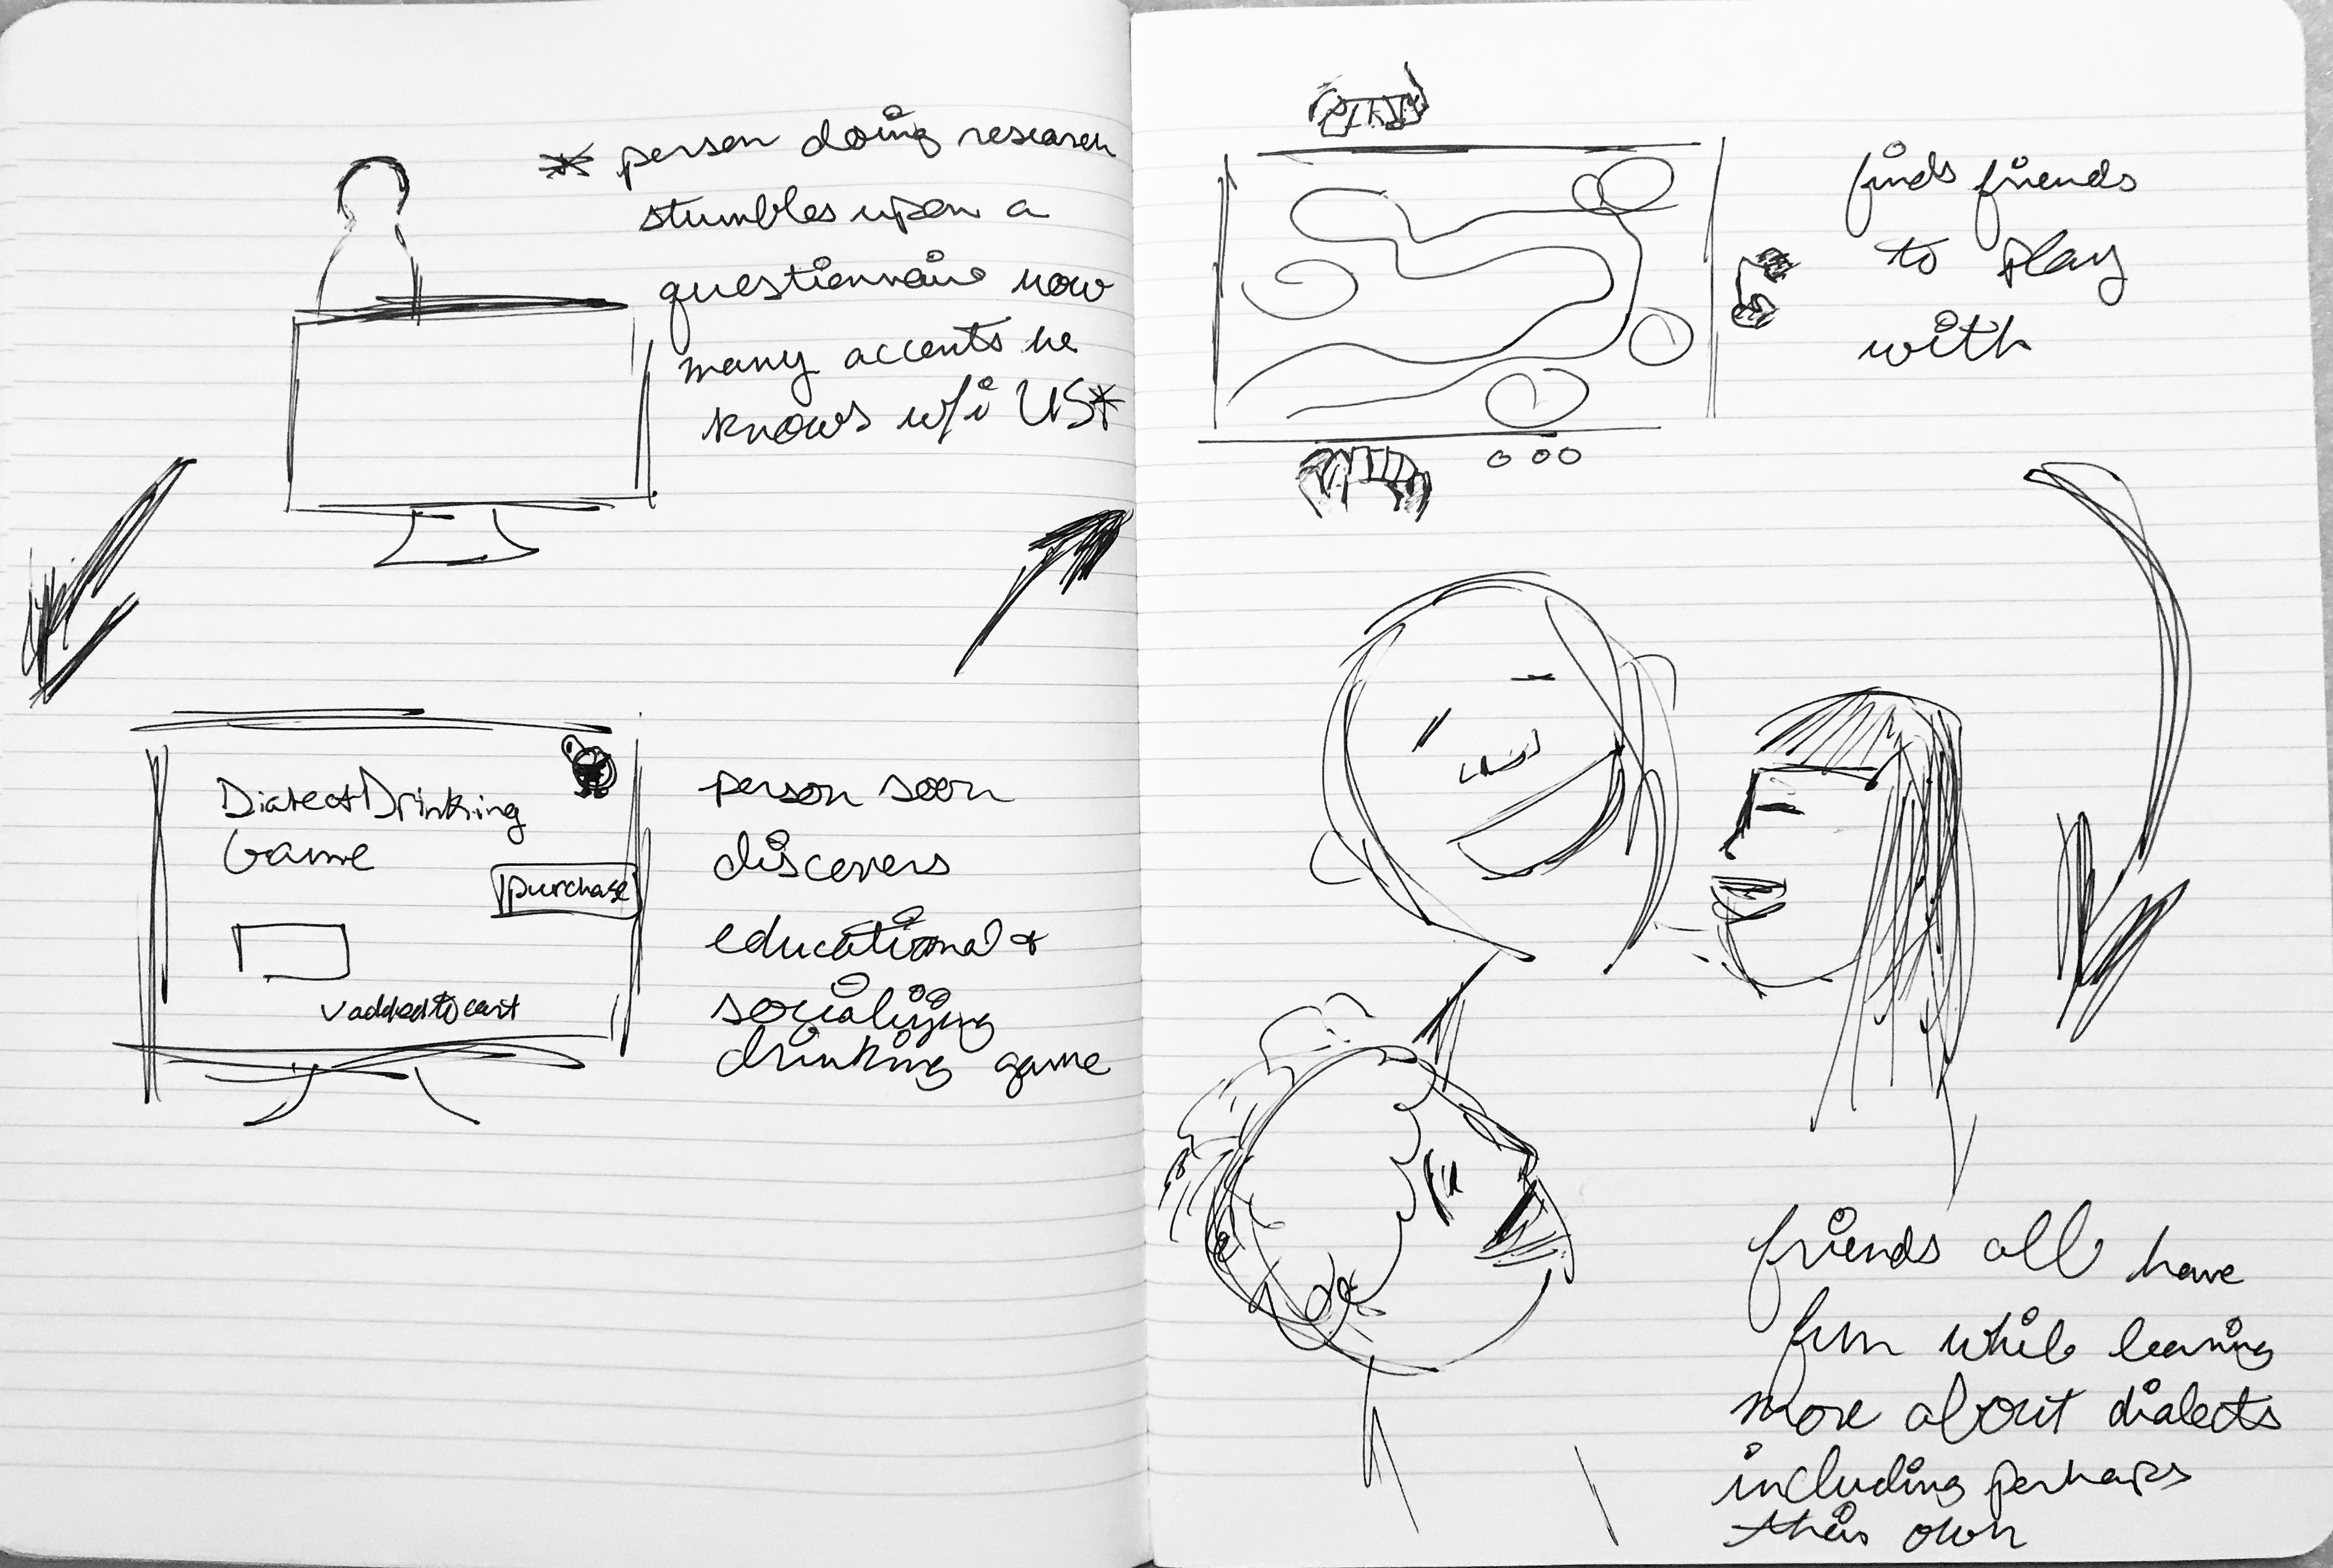 * person doing research
stumbles upon a
questionnaire how
many accents he
knows w/i US*
Dialect Drinking
Game
purchase
v added to cart
person soon
discovers
educational &
socializing
drinking game
finds friends
to play
with
friends all have
fun while learning
more about dialects
including perhaps
their own